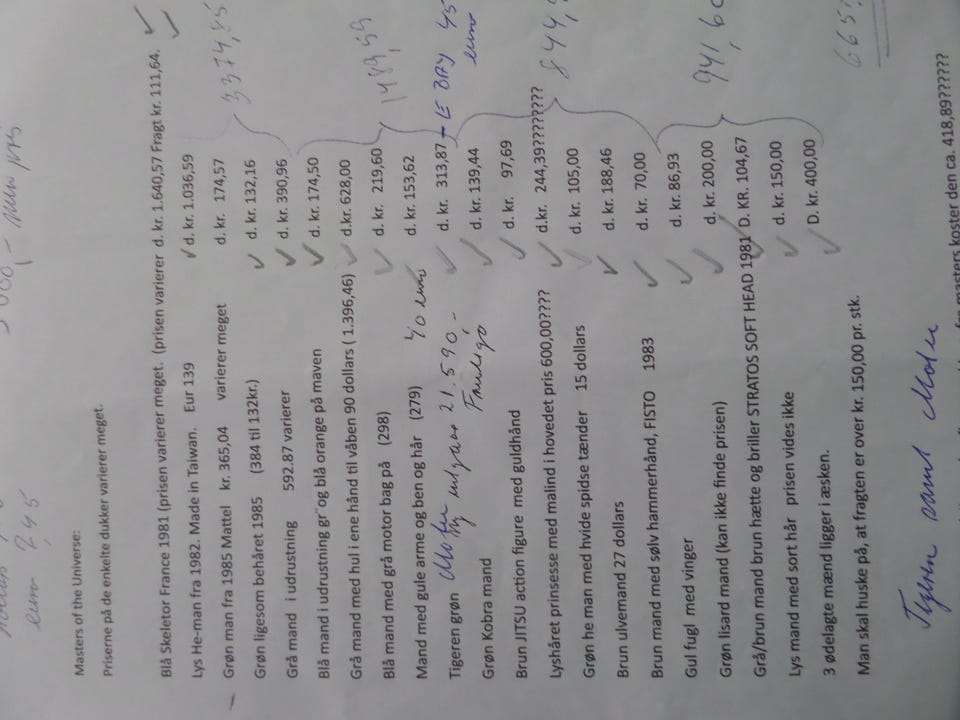 5000,- min pris
euro 245
Masters of the Universe:
Priserne på de enkelte dukker varierer meget.
Blå Skeletor France 1981 (prisen varierer meget. (prisen varierer d. kr. 1.640,57 Fragt kr. 111,64.
Lys He-man fra 1982. Made in Taiwan. Eur 139 d. kr. 1.036,59
Grøn man fra 1985 Mattel kr. 365,04 varierer meget d. kr. 174,57
3374,85
Grøn ligesom behåret 1985 (384 til 132kr.) d. kr. 132,16
Grå mand i udrustning 592.87 varierer d. kr. 390,96
Blå mand i udrustning gr¨og blå orange på maven d. kr. 174,50
Grå mand med hul i ene hånd til våben 90 dollars ( 1.396,46) d.kr. 628,00
Blå mand med grå motor bag på (298) d. kr. 219,60
1489,59
Mand med gule arme og ben og hår (279) 40 euro d. kr. 153,62
Tigeren grøn Motu ny udgave 21.590,- d. kr. 313,87 - LE BAY 45 euro
Grøn Kobra mand d. kr. 139,44
Brun JITSU action figure med guldhånd d. kr. 97,69
Lyshåret prinsesse med malind i hovedet pris 600,00???? d.kr. 244,39?????????
844,
Grøn he man med hvide spidse tænder 15 dollars d. kr. 105,00
Brun ulvemand 27 dollars d. kr. 188,46
Brun mand med sølv hammerhånd, FISTO 1983 d. kr. 70,00
Gul fugl med vinger d. kr. 86,93
Grøn lisard mand (kan ikke finde prisen) d. kr. 200,00
941,60
Grå/brun mand brun hætte og briller STRATOS SOFT HEAD 1981 D. KR. 104,67
Lys mand med sort hår prisen vides ikke d. kr. 150,00
3 ødelagte mænd ligger i æsken. D. kr. 400,00
665
Man skal huske på, at fragten er over kr. 150,00 pr. stk.
Tigeren samt Motu
fra masters koster den ca. 418,89??????